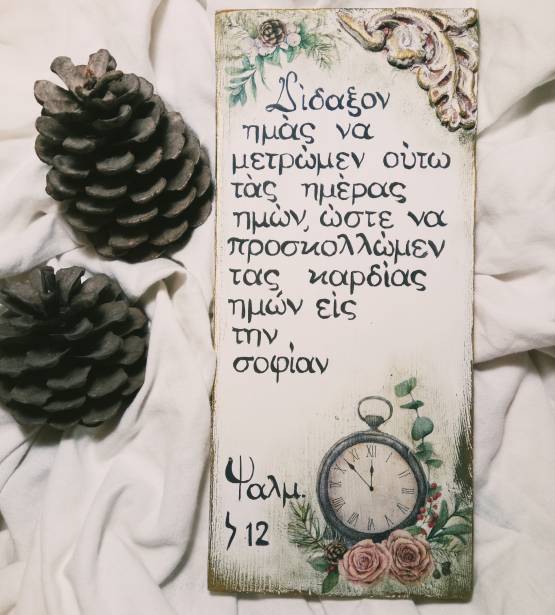 Δίδαξον
ημάς να
μετρώμεν ούτω
τάς ημέρας
ημών, ώστε να
προσκολλώμεν
τας καρδίας
ημών είς
την
σοφίαν
Ψαλμ.
ϟ 12